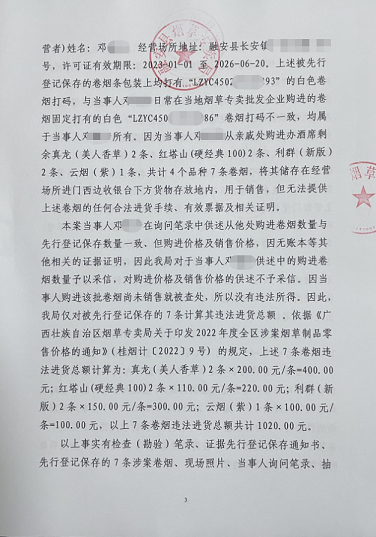 营者)姓名：邓 经营场所地址：融安县长安镇
号，许可证有效期限：2023-01-01 至 2026-06-20。上述被先行
登记保存的卷烟条包装上均打有“LZYC4502 93”的白色卷
烟打码，与当事人邓 日常在当地烟草专卖批发企业购进的卷
烟固定打有的白色“LZYC450 86”卷烟打码不一致，均属
于当事人邓 所有。因为当事人邓 从亲戚处购进办酒席剩
余真龙（美人香草）2条、红塔山(硬经典100)2条、利群（新版）
2条、云烟（紫）1条，共计4个品种7条卷烟，将其储存在经营
场所进门西边收银台下方货物存放地内，用于销售，但无法提供
上述卷烟的任何合法进货手续、有效票据及相关证明。
本案当事人邓 在询问笔录中供述从他处购进卷烟数量与
先行登记保存数量一致、但购进价格及销售价格，因无账本等其
他相关的证据证明，因此我局对于当事人邓 供述中的购进卷
烟数量予以采信，对购进价格及销售价格的供述不予采信。因当
事人购进该批卷烟尚未销售就被查处，所以没有违法所得。因此，
我局仅对被先行登记保存的7条计算其违法进货总额 。依据《广
西壮族自治区烟草专卖局关于印发2022年度全区涉案烟草制品零
售价格的通知》（桂烟计〔2022〕9号）的规定，上述7条卷烟违
法进货总额计算为：真龙(美人香草)2条×200.00元/条=400.00
元；红塔山(硬经典100)2条×110.00元/条=220.00元；利群（新
版）2条×150.00元/条=300.00元；云烟（紫）1条×100.00元/
条=100.00元，以上7条卷烟违法进货总额共计1020.00元。
以上事实有检查（勘验）笔录、证据先行登记保存通知书、
先行登记保存的7条涉案卷烟、现场照片、当事人询问笔录、抽
3